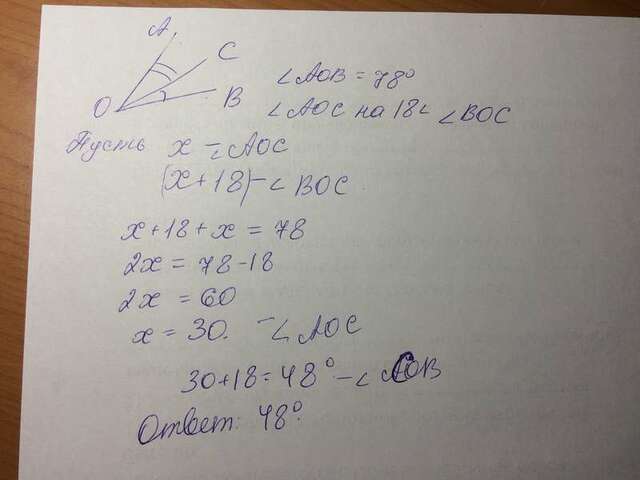 A
C
O
B
∠AOB = 78°
∠AOC на 18 < ∠BOC
Пусть x – ∠AOC
(x+18) – ∠BOC
x+18+x = 78
2x = 78-18
2x = 60
x = 30. – ∠AOC
30+18=48° – ∠COB
Ответ: 48°.